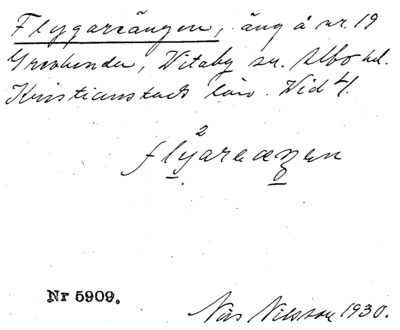 Flygareängen, äng å nr. 19
Grevlunda, Vitaby sn. Albo hd.
Kristianstads län. Vid 4.
2
flyareæŋen
Nr 5909.
Nils Nilsson 1930.